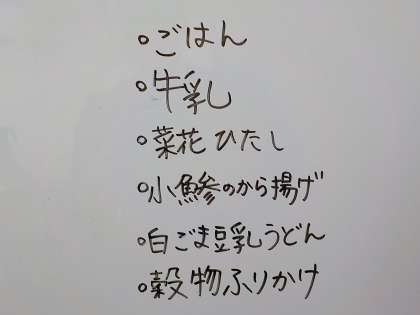 ○ごはん
○牛乳
○菜花ひたし
○小鯵のから揚げ
○白ごま豆乳うどん
○穀物ふりかけ